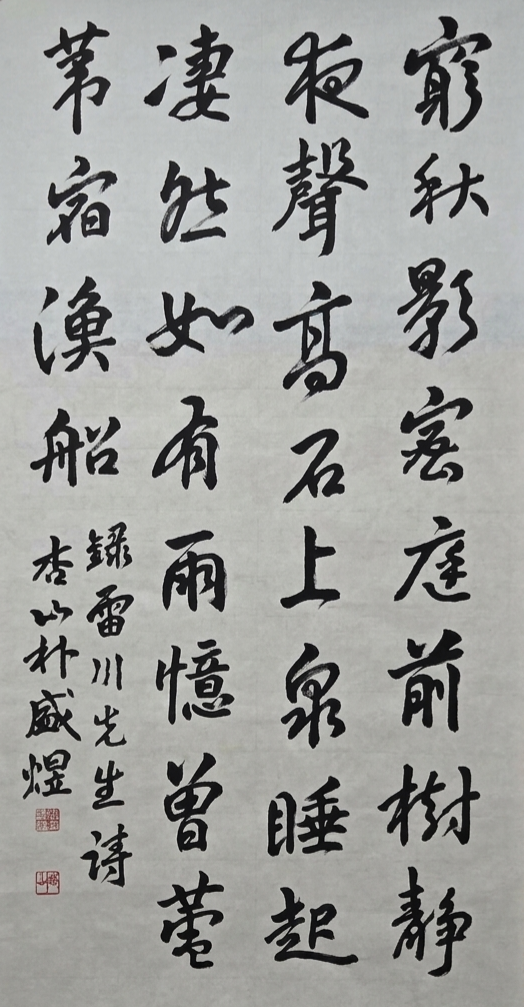 窮秋影密庭前樹靜
夜聲高石上泉睡起
凄然如有雨憶曾蘆
葦宿漁船
錄雷川先生詩
杏山朴盛煜